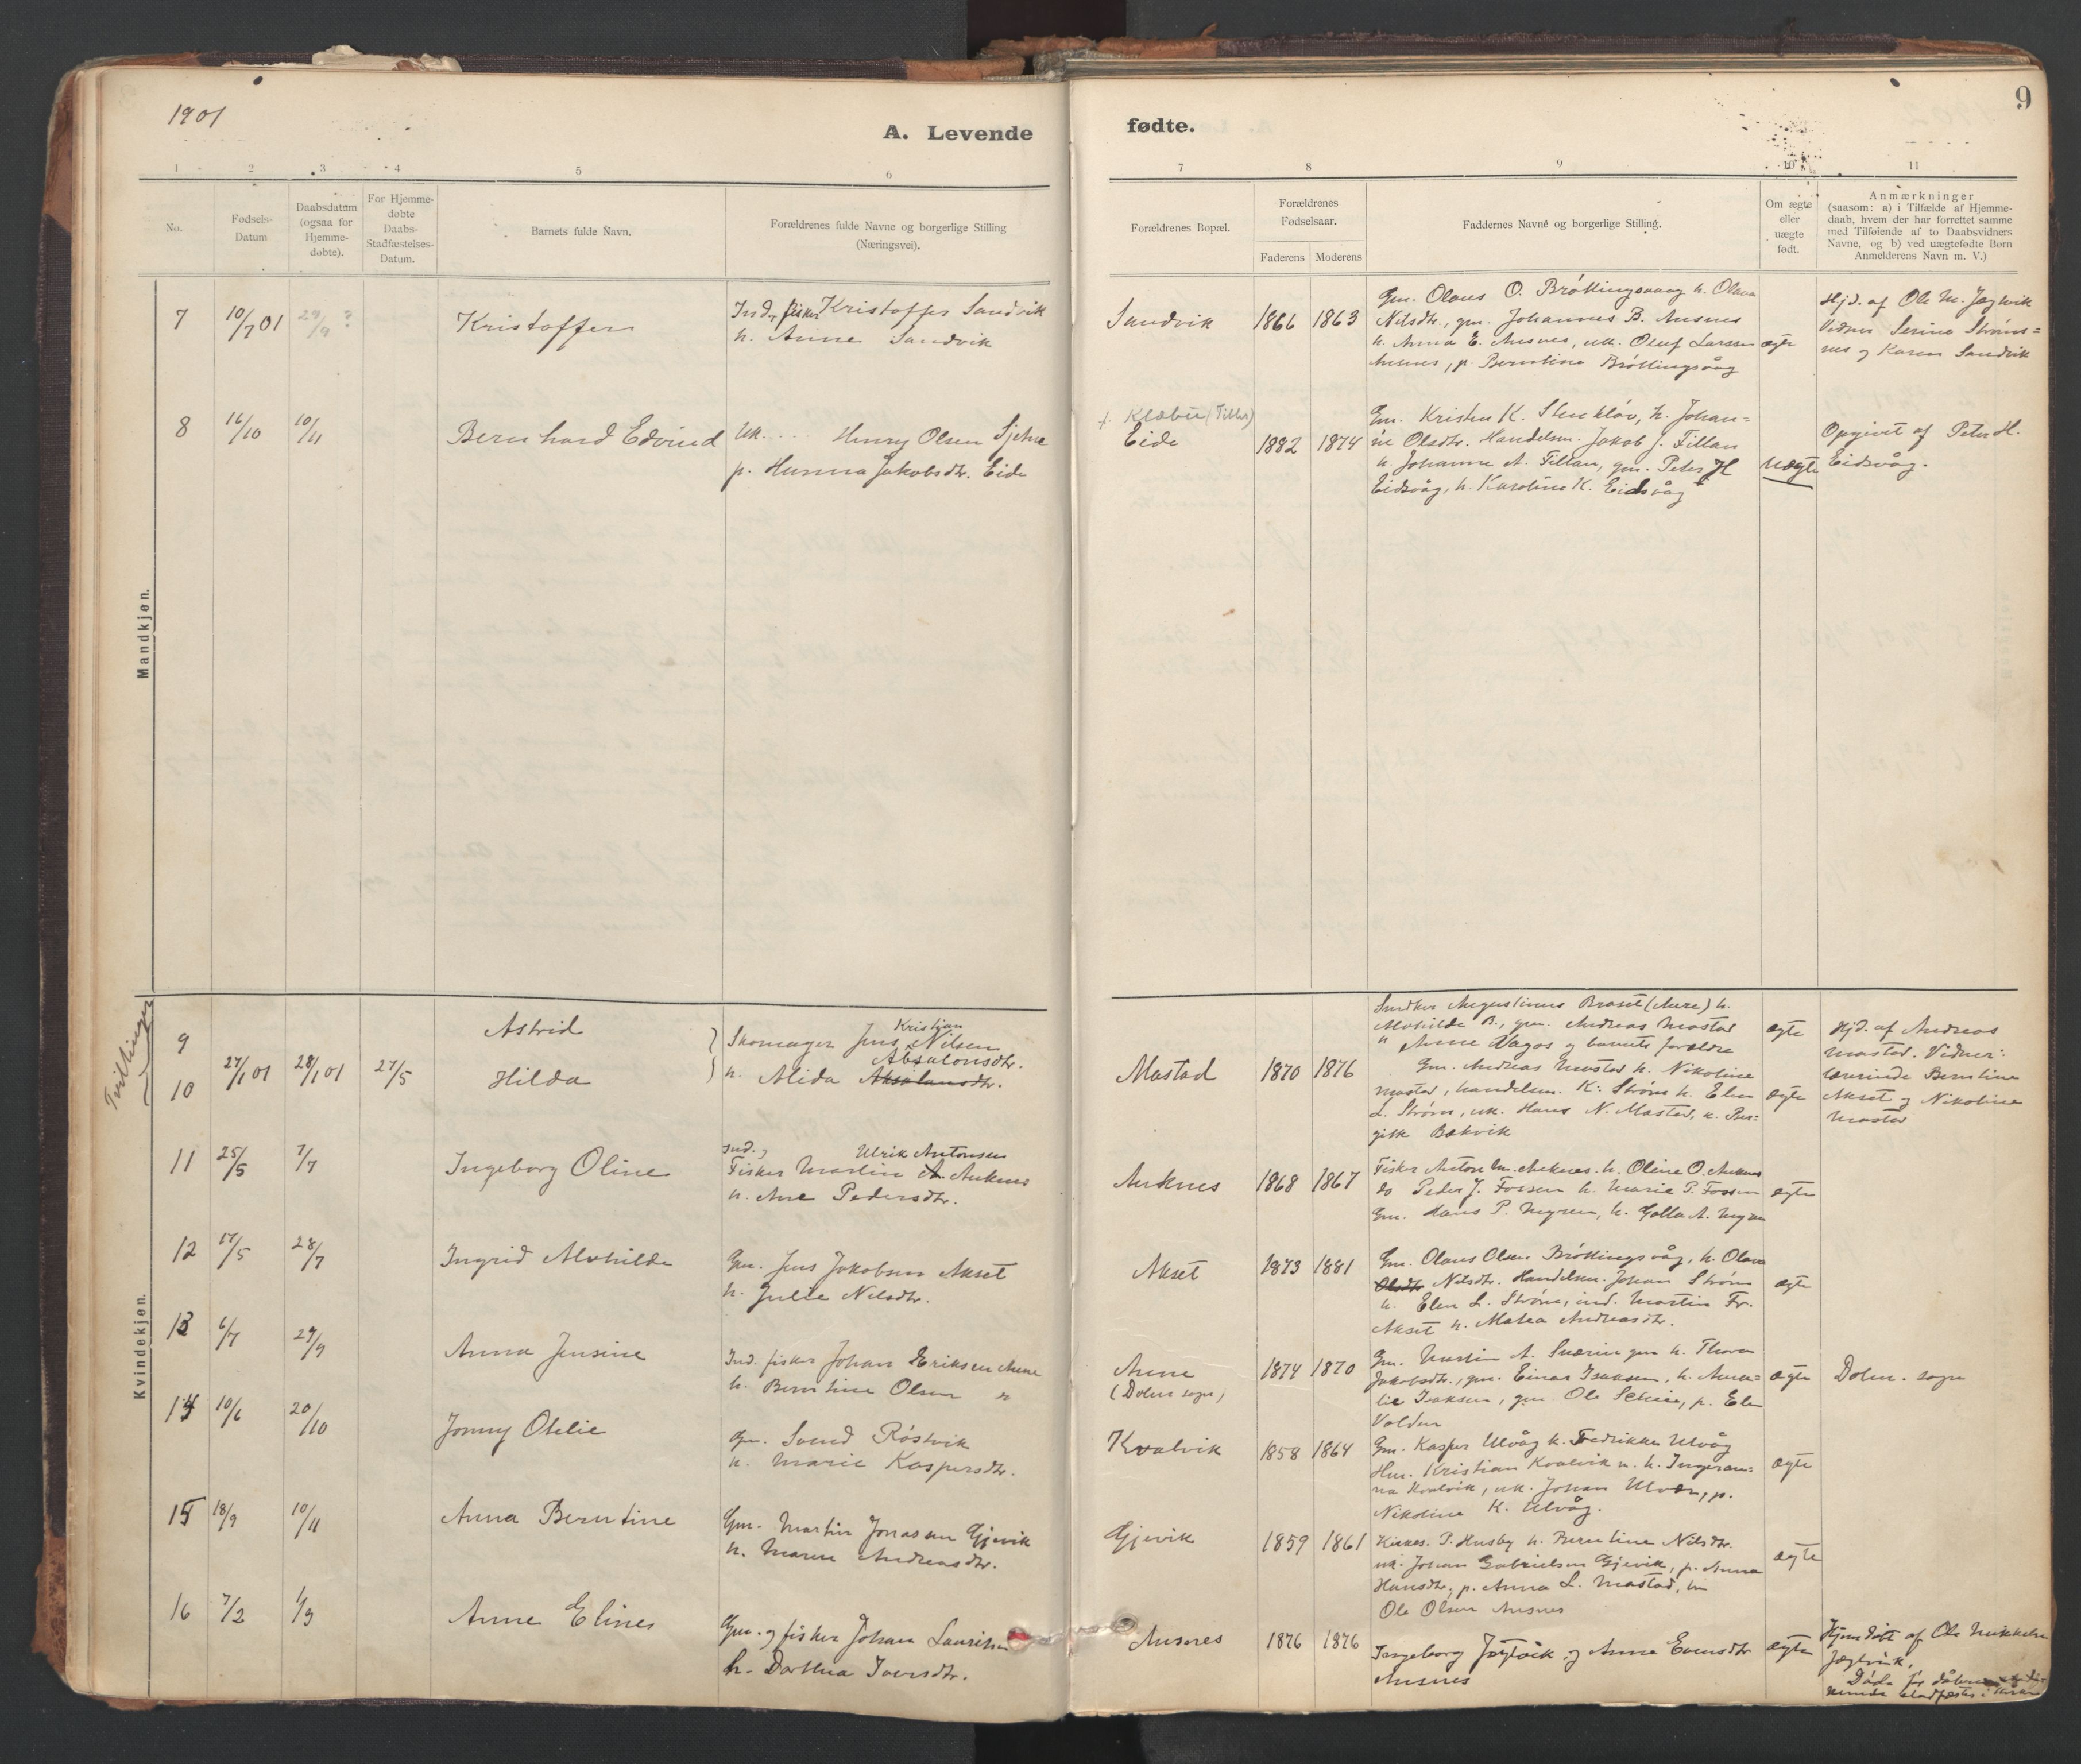 1901
9
A. Levende
fødte.
1 2 3 4 5 6
7 8 9 10 11
No.
Fødsels-
Datum
Daabsdatum
(ogsaa for
Hjemme-
døbte).
For Hjemme-
døbte
Daabs-
Stadfæstelses-
Datum.
Barnets fulde Navn.
Forældrenes fulde Navne og borgerlige Stilling
(Næringsvei).
Forældrenes Bopæl.
Forældrenes
Fødselsaar.
Faderens Moderens
Faddernes Navne og borgerlige Stilling.
Om ægte
eller
uægte
født.
Anmærkninger
(saasom: a) i Tilfælde af Hjemme-
daab, hvem der har forrettet samme
med Tilføiende af to Daabsvidners
Navne, og b) ved uægtefødte Børn
Anmelderens Navn m. V.)
Mandkjøn.
7 10/7 01 29/9 ?
Kristoffer
Ind, fisker Kristoffer Sandvik
h. Anne Sandvik
Sandvik
1866 1863
Gm. Olaus O. Brøttingsvaag h. Olava
Nilsdtr., gm. Johannes B. Ausnes
h. Anna E. Ausnes, uk. Oluf Larssen
Ausnes, p. Berntine Brøttingsvåg
ægte
Hjd. af Ole M. Jægtvik
Vidner Serine Strøms=
nes og Karen Sandvik
8 16/10 10/11
Bernhard Edvind
Uk. ... Henry Olsen Sjetne
p. Hanna Jakobsdtr. Eide
f. Klæbu (Tiller)
Eide
1882 1874
Gm. Kristen K. Stenkløv, h. Johan=
ne Olsdtr. Handelsm. Jakob J. Fillan
h. Johanne A. Fillan, gm. Peter H
Eidsvåg, h. Karoline K. Eidsvåg
Uægte
Opgivet af Peter H.
Eidsvåg.
Kvindekjøn.
Tvillinger
9
10
27/1 01 28/1 01 27/5
Astrid
Hilda
Kristian
Skomager Jens Nilsen
Absalonsdtr.
h. Alida Aksalansdtr.
Mastad
1870 1876
Snedker Augustinus Braset (Aure) h.
Alvhilde B., gm. Andreas Mastad
h Anne Vagos og barnets forældre
Gm. Andreas Mastad h. Nikoline
Mastad, handelsm. K. Strøm h. Elen
L. Strøm, uk. Hans N. Mastad, k. Bir-
gitte Bækvik
ægte
ægte
Hjd. af Andreas
Mastad. Vidner:
lærerinde Berntine
Akset og Nikoline
Mastad
11 25/5 7/7
Ingeborg Oline
Ind. og Ulrik Antonsen
Fisker Martin A. Auknes
h. Ane Pedersdtr.
Auknes
1868 1867
Fisker Anton M. Auknes h. Oline O. Auknes
do Peder J. Fossen h. Marie P. Fossen
Gm. Hans P. Myren, h. Golla A. Myren
ægte
12 17/5 28/7
Ingrid Alvhilde
Gm. Jens Jakobsen Akset
h. Julie Nilsdtr.
Akset
1873 1881
Gm. Olaus Olsen Brøttingsvåg, h. Olava
Olsdtr Nilsdtr. Handelsm. Johan Strøm
h. Elen L. Strøm, ind. Martin Fr.
Akset h. Malea Andreasdtr.
ægte
13 6/7 29/9
Anna Jensine
Ind. fisker Johan Eriksen Aune
h. Berntine Olsen do
Aune
(Dolm sogn)
1874 1870
Gm. Martin A. Sværingen h. Thora
Jakobsdtr., gm. Einar Isaksen, h. Ama=
lie Isaksen, gm. Ole Selnes, p. Elen
Volden
ægte
Dolm. sogn
14 10/6 20/10
Jonny Otelie
Gm. Svend Røstvik
h. Marie Kaspersdtr.
Kvalvik
1858 1864
Gm. Kasper Ulvåg h. Fredrikke Ulvåg
Hm. Kristian Kvalvik u. h. Ingeran=
na Kvalvik, uk. Johan Ulvøen, p.
Nikoline K. Ulvåg.
ægte
15 18/9 10/11
Anna Berntine
Gm. Martin Jonassen Gjevik
h. Maren Andreasdtr.
Gjevik
1859 1861
Kirkes. P. Husby h. Berntine Nilsdtr.
uk. Johan Gabrielsen Gjevik, p. Anna
Hansdtr, p. Anna L. Mastad, um
Ole Olsen Ausnes
ægte
16 7/2 1/3
Anne Elines
Gm. og fisker Johan Lauritsen
h. Dorthea Iversdtr.
Ausnes
1876 1876
Ingeborg Jægtvik og Anna Evensdtr
Ausnes
ægte
Hjemdøbt af Ole Mikkelsen
Jægtvik.
Døde før dåben
kunde stadfæstes i Kirken